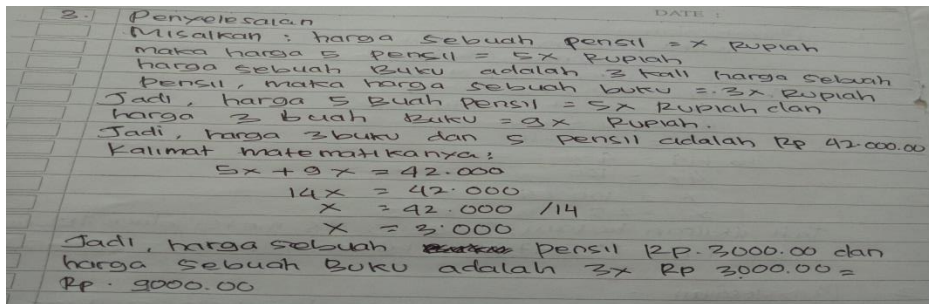 DATE :
3. Penyelesaian
Misalkan : harga sebuah pensil = x Rupiah
maka harga 5 pensil = 5x Rupiah
harga sebuah Buku adalah 3 kali harga sebuah
pensil, maka harga sebuah buku = 3x Rupiah
Jadi, harga 5 Buah pensil = 5x Rupiah dan
harga 3 buah Buku = 9x Rupiah.
Jadi, harga 3 buku dan 5 pensil adalah Rp 42.000.00
Kalimat matematikanya:
5x + 9x = 42.000
14x = 42.000
x = 42.000 /14
x = 3.000
Jadi, harga sebuah pensil Rp. 3000.00 dan
harga sebuah Buku adalah 3x Rp 3000.00 =
Rp. 9000.00